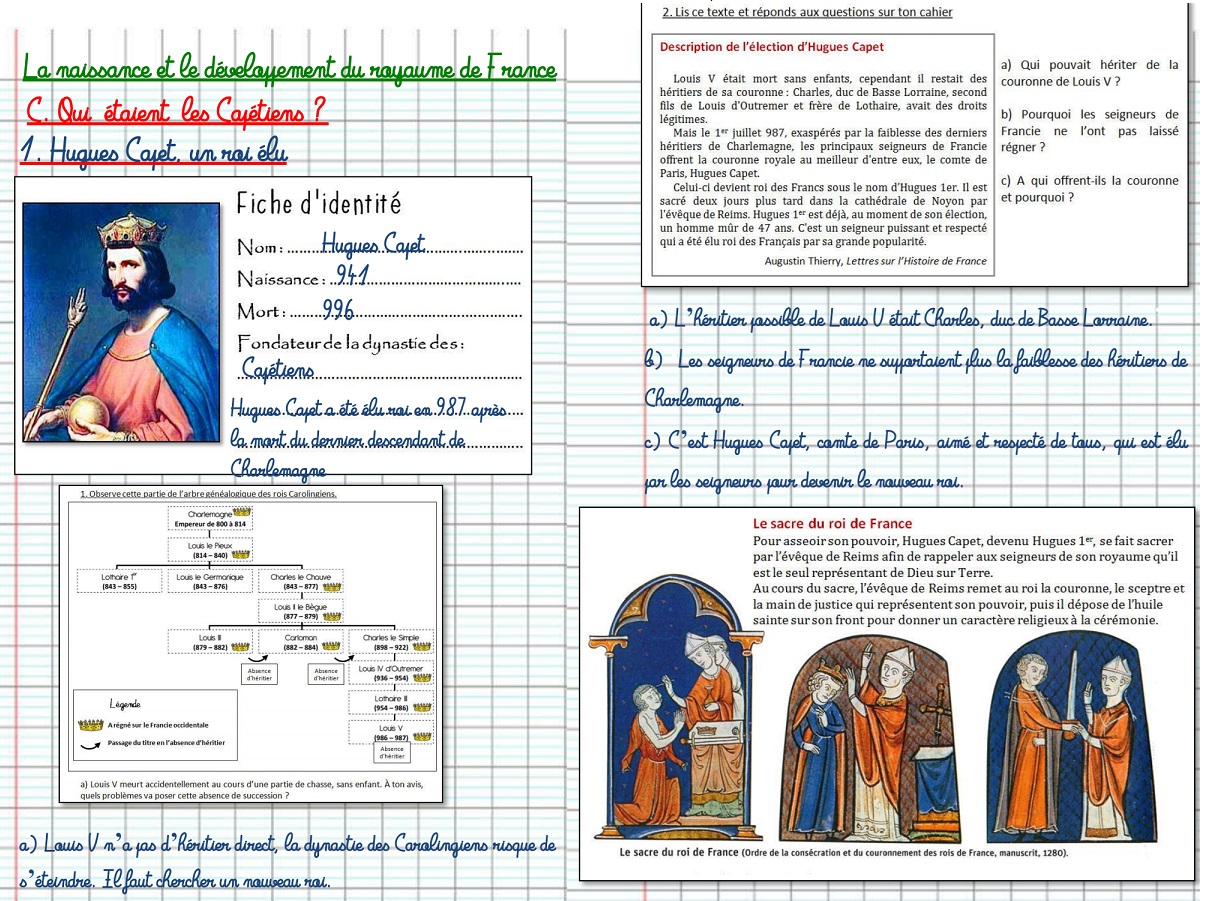 La naissance et le développement du royaume de France
C. Qui étaient les Capétiens ?
1. Hugues Capet, un roi élu
Fiche d'identité
Nom : Hugues Capet
Naissance : 941
Mort : 996
Fondateur de la dynastie des :
Capétiens
Hugues Capet a été élu roi en 987 après
la mort du dernier descendant de
Charlemagne
1. Observe cette partie de l'arbre généalogique des rois Carolingiens.
Charlemagne
Empereur de 800 à 814
Louis le Pieux
(814 – 840)
Lothaire 1er
(843 – 855)
Louis le Germanique
(843 – 876)
Charles le Chauve
(843 – 877)
Louis II le Bègue
(877 – 879)
Louis III
(879 – 882)
Carloman
(882 – 884)
Charles le Simple
(898 – 922)
Absence
d'héritier
Absence
d'héritier
Louis IV d'Outremer
(936 – 954)
Lothaire III
(954 – 986)
Louis V
(986 – 987)
Absence
d'héritier
Légende
A régné sur le Francie occidentale
Passage du titre en l'absence d'héritier
a) Louis V meurt accidentellement au cours d'une partie de chasse, sans enfant. À ton avis,
quels problèmes va poser cette absence de succession ?
a) Louis V n'a pas d'héritier direct, la dynastie des Carolingiens risque de
s'éteindre. Il faut chercher un nouveau roi.
2. Lis ce texte et réponds aux questions sur ton cahier
Description de l'élection d'Hugues Capet
Louis V était mort sans enfants, cependant il restait des
héritiers de sa couronne : Charles, duc de Basse Lorraine, second
fils de Louis d'Outremer et frère de Lothaire, avait des droits
légitimes.
Mais le 1er juillet 987, exaspérés par la faiblesse des derniers
héritiers de Charlemagne, les principaux seigneurs de Francie
offrent la couronne royale au meilleur d'entre eux, le comte de
Paris, Hugues Capet.
Celui-ci devient roi des Francs sous le nom d'Hugues 1er. Il est
sacré deux jours plus tard dans la cathédrale de Noyon par
l'évêque de Reims. Hugues 1er est déjà, au moment de son élection,
un homme mûr de 47 ans. C'est un seigneur puissant et respecté
qui a été élu roi des Français par sa grande popularité.
Augustin Thierry, Lettres sur l'Histoire de France
a) Qui pouvait hériter de la
couronne de Louis V ?
b) Pourquoi les seigneurs de
Francie ne l'ont pas laissé
régner ?
c) A qui offrent-ils la couronne
et pourquoi ?
a) L'héritier possible de Louis V était Charles, duc de Basse Lorraine.
b) Les seigneurs de Francie ne supportaient plus la faiblesse des héritiers de
Charlemagne.
c) C'est Hugues Capet, comte de Paris, aimé et respecté de tous, qui est élu
par les seigneurs pour devenir le nouveau roi.
Le sacre du roi de France
Pour asseoir son pouvoir, Hugues Capet, devenu Hugues 1er, se fait sacrer
par l'évêque de Reims afin de rappeler aux seigneurs de son royaume qu'il
est le seul représentant de Dieu sur Terre.
Au cours du sacre, l'évêque de Reims remet au roi la couronne, le sceptre et
la main de justice qui représentent son pouvoir, puis il dépose de l'huile
sainte sur son front pour donner un caractère religieux à la cérémonie.
Le sacre du roi de France (Ordre de la consécration et du couronnement des rois de France, manuscrit, 1280).